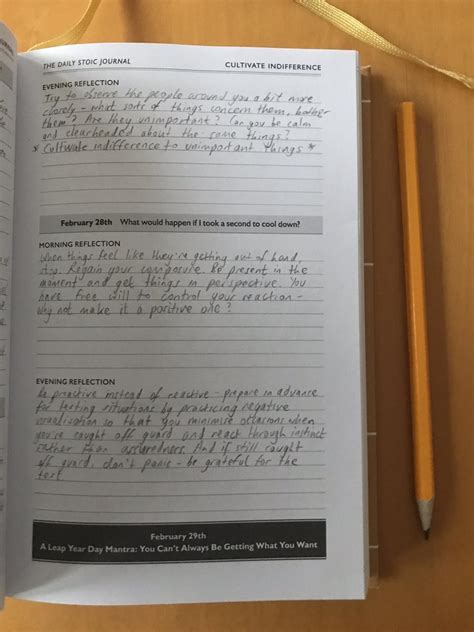 THE DAILY STOIC JOURNAL CULTIVATE INDIFFERENCE
EVENING REFLECTION
Try to observe the people around you a bit more
closely - what sorts of things concern them, bother
them? Are they unimportant? Can you be calm
and clearheaded about the same things?
* Cultivate indifference to unimportant things *
February 28th What would happen if I took a second to cool down?
MORNING REFLECTION
When things feel like they're getting out of hand,
stop. Regain your composure. Be present in the
moment and get things in perspective. You
have free will to control your reaction -
why not make it a positive one?
EVENING REFLECTION
Be proactive instead of reactive - prepare in advance
for testing situations by practicing negative
visualisation so that you minimise occasions when
you're caught off guard and react through instinct
rather than assuredness. And if still caught
off guard, don't panic - be grateful for the
test
February 29th
A Leap Year Day Mantra: You Can't Always Be Getting What You Want